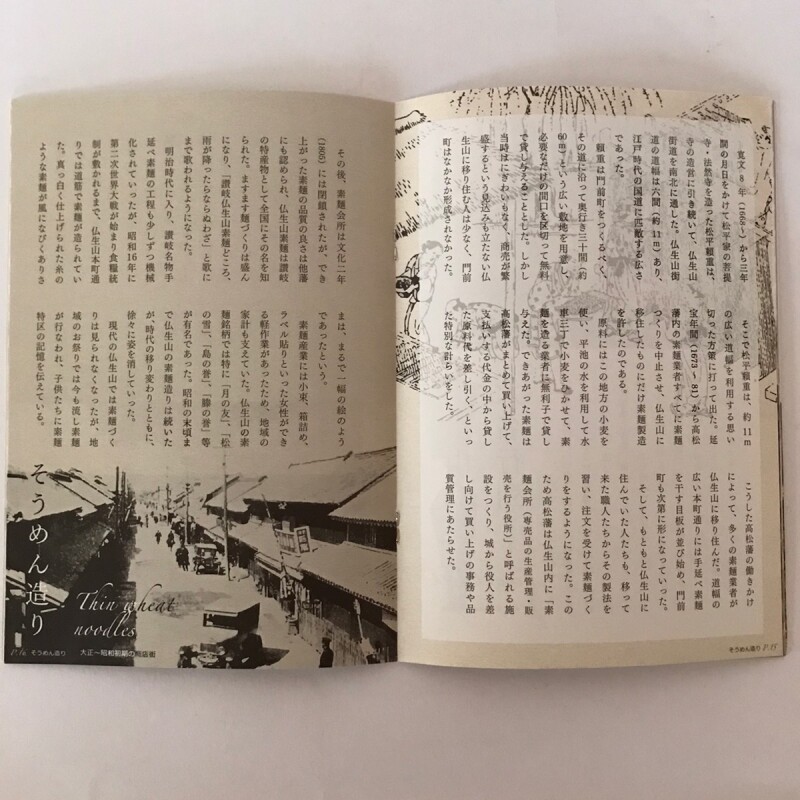 寛文8年(1668〜)から三年
間の月日をかけて松平家の菩提
寺・法然寺を造った松平頼重は、
寺の造営に引き続いて、仏生山
街道を南北に通した。仏生山街
道の道幅は六間(約11m)あり、
江戸時代の国道に匹敵する広さ
であった。
頼重は門前町をつくるべく、
その道に沿って奥行き三十間(約
60m)という広い敷地を用意し、
必要なだけの間口を区切って無料
で貸し与えることとした。しかし
当時はにぎわいもなく、商売が繁
盛するという見込みも立たない仏
生山に移り住む人は少なく、門前
町はなかなか形成されなかった。
そこで松平頼重は、約11m
の広い道幅を利用する思い
切った方策に打って出た。延
宝年間(1673〜81)から高松
藩内の素麺業者すべてに素麺
つくりを中止させ、仏生山に
移住したものにだけ素麺製造
を許したのである。
原料にはこの地方の小麦を
使い、平池の水を利用して水
車三丁で小麦をひかせて、素
麺を造る業者に無利子で貸し
与えた。できあがった素麺は
高松藩がまとめて買い上げて、
支払いする代金の中から貸し
た原料代を差し引く、といっ
た特別な計らいをした。
こうした高松藩の働きかけ
によって、多くの素麺業者が
仏生山に移り住んだ。道幅の
広い本町通りには手延べ素麺
を干す目板が並び始め、門前
町も次第に形になっていった。
そして、もともと仏生山に
住んでいた人たちも、移って
来た職人たちからその製法を
習い、注文を受けて素麺づく
りをするようになった。この
ため高松藩は仏生山内に「素
麺会所(専売品の生産管理・販
売を行う役所)」と呼ばれる施
設をつくり、城から役人を差
し向けて買い上げの事務や品
質管理にあたらせた。
そうめん造り P.15
その後、素麺会所は文化二年
(1805)には閉鎖されたが、でき
上がった素麺の品質の良さは他藩
にも認められ、仏生山素麺は讃岐
の特産物として全国にその名を知
られた。ますます麺づくりは盛ん
になり、「讃岐仏生山素麺どころ、
雨が降ったらならぬわざ」と歌に
まで歌われるようになった。
明治時代に入り、讃岐名物手
延べ素麺の工程も少しずつ機械
化されていったが、昭和16年に
第二次世界大戦が始まり食糧統
制が敷かれるまで、仏生山本町通
りでは道筋で素麺が造られてい
た。真っ白く仕上げられた糸の
ような素麺が風になびくありさ
まは、まるで一幅の絵のよう
であったという。
素麺産業には小束、箱詰め、
ラベル貼りといった女性ができ
る軽作業があったため、地域の
家計も支えていた。仏生山の素
麺銘柄では特に「月の友」、「松
の雪」、「島の誉」、「滕の誉」等
が有名であった。昭和の末頃ま
で仏生山の素麺造りは続いた
が時代の移り変わりとともに、
徐々に姿を消していった。
現代の仏生山では素麺づく
りは見られなくなったが、地
域のお祭りでは今も流し素麺
が行なわれ、子供たちに素麺
特区の記憶を伝えている。
そうめん造り
Thin wheat
noodles
P.16 そうめん造り
大正〜昭和初期の商店街